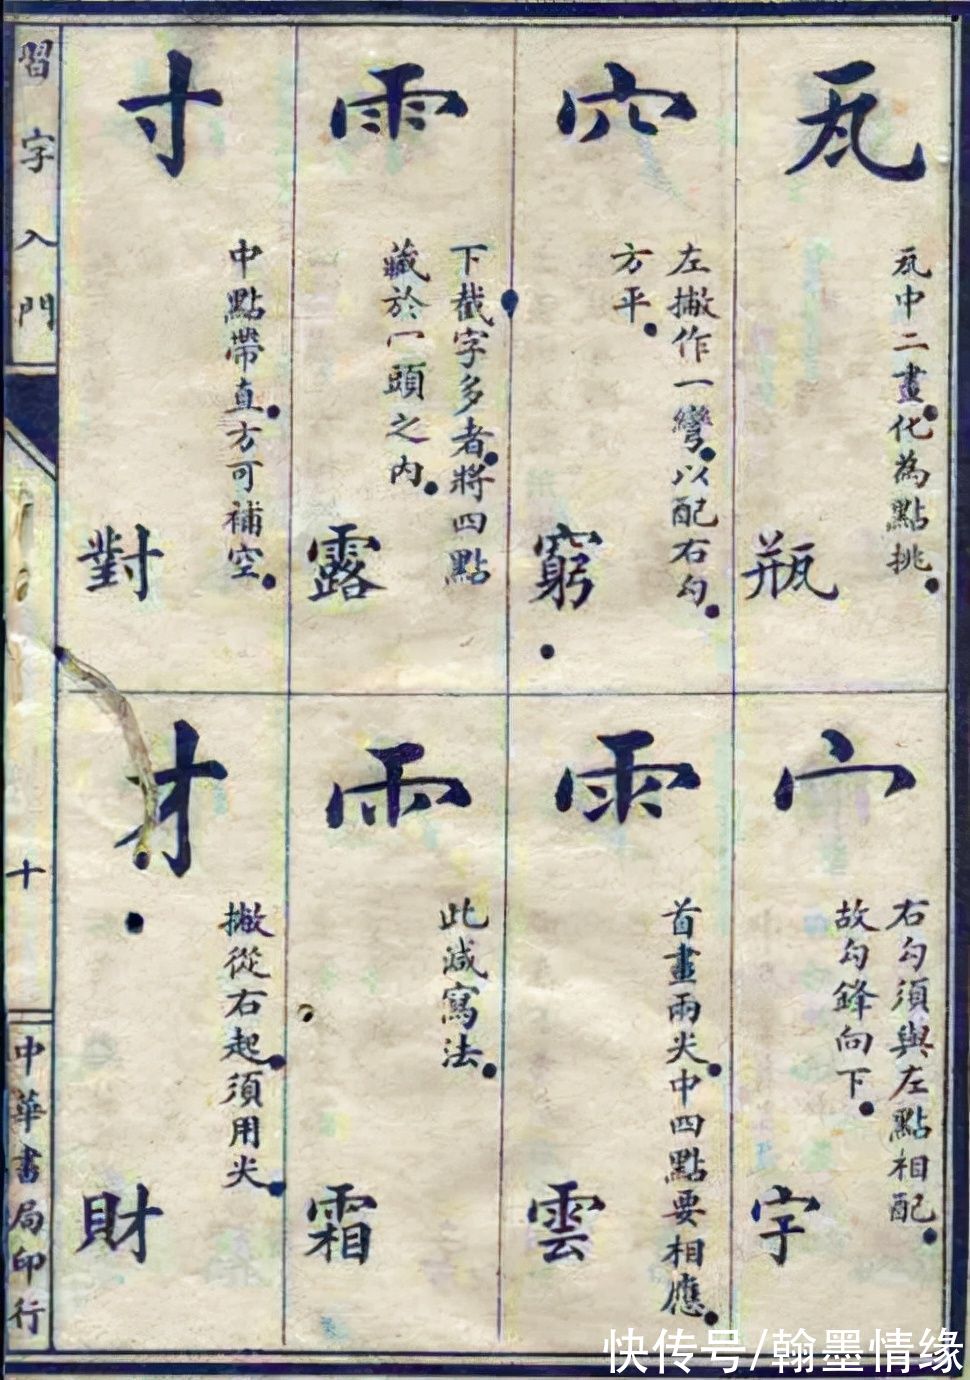 瓦
瓦中二畫化為點挑
瓶
宀
右勾須與左點相配
故勾鋒向下
字
穴
左撇作一彎以配右勾
方平
窮
雨
首畫兩尖中四點要相應
雲
雨
下截字多者將四點
藏於冖頭之內
露
雨
此減寫法
霜
寸
中點帶直方可補空
對
才
撇從右起須用尖
財
習字入門
十
中華書局印行
快传号/翰墨情缘